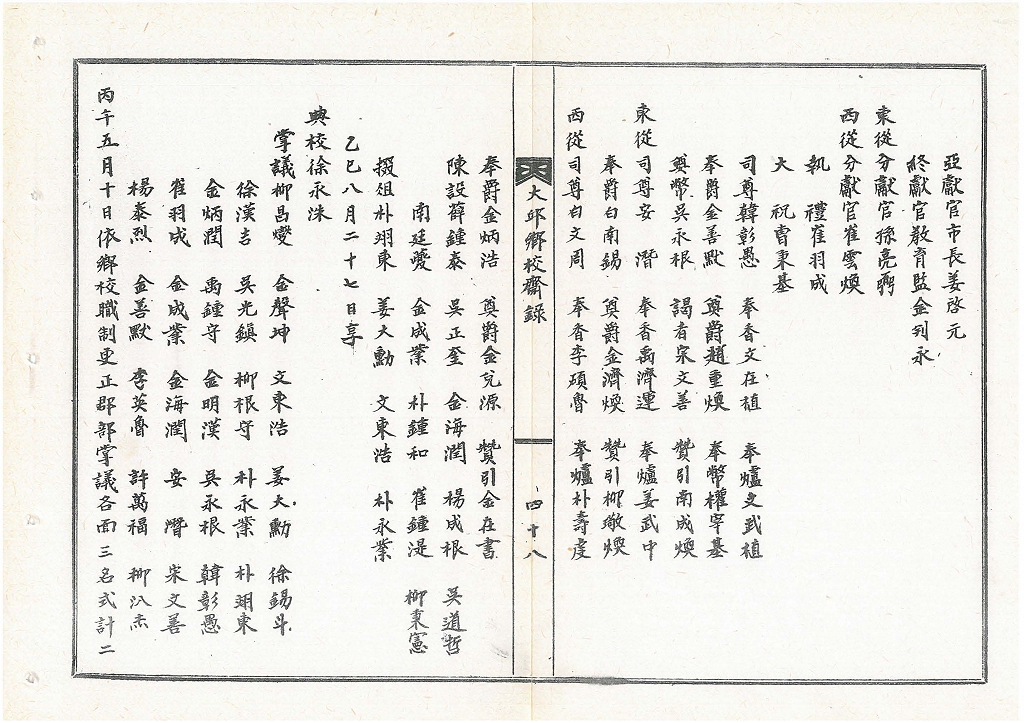 亞獻官市長姜啓元
終獻官敎育監金列永
東從分獻官孫亮
西從分獻官崔雲煥
執 禮崔羽成
大 祝曺秉基
司尊韓彰愚 奉香文在植 奉爐文武植
奉爵金善默 奠爵趙重煥 奉幣權寧基
奠幣吳永根 謁者宋文善 贊引南成煥
東從司尊安 潛 奉香禹濟運 奉爐姜武中
奉爵白南錫 奠爵金濟煥 贊引柳敬煥
西從司尊白文周 奉香李碩魯 奉爐朴壽虔
大邱鄕校齋錄
四十八
奉爵金炳浩 奠爵金兌源 贊引金在書
陳設薛鍾泰 吳正奎 金海潤 楊成根 吳道哲
南廷夔 金成業 朴鍾和 崔鍾湜 柳秉憲
掇俎朴翊東 姜大勳 文東浩 朴永業
乙巳八月二十七日享
典校徐永洙
掌議柳昌燮 金聲坤 文東浩 姜大勳 徐錫斗
徐漢吉 吳光鎭 柳根守 朴永業 朴翊東
金炳潤 禹鍾守 金明漢 吳永根 韓彰愚
崔羽成 金成業 金海潤 安 潛 宋文善
楊泰烈 金善默 李英魯 許萬福 柳
丙午五月十日依鄕校職制更正郡部掌議各面三名式計二